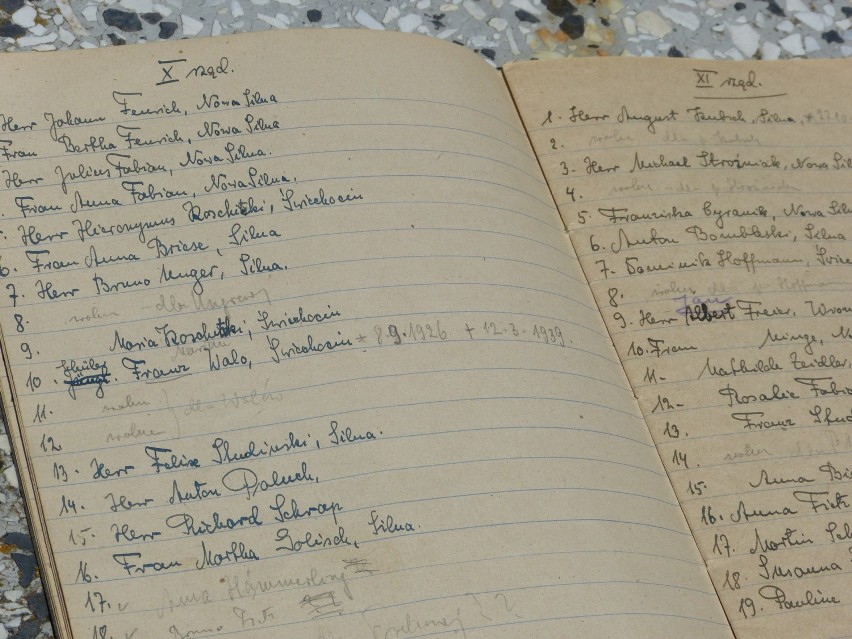 X rząd.
Herr Johann Fenrich, Nowa Silna
Frau Bertha Fenrich, Nowa Silna
Herr Julius Fabian, Nowa Silna.
Frau Anna Fabian, Nowa Silna.
Herr Hieronymus Koschitzki, Świechocin
6. Frau Anna Briese, Silna
7. Herr Bruno Unger, Silna.
8. wolne - dla Ungerowej
9. Maria Koschitzki, Świechocin
10. Schüler Franz Walo, Świechocin * 8.9.1926 + 12.3.1939.
11. wolne
12 wolne dla Walów
13. Herr Felix Studzinski, Silna.
14. Herr Anton Paluch,
15. Herr Richard Schrap
16. Frau Martha Golisch, Silna.
17. Anna Hämmerling
18. Bruno
XI rząd.
1. Herr August Jentsch, Silna,
2. wolne dla p.
3. Herr Michael Stroźniak, Nowa
4. wolne dla p.
5. Franziska Cyranik, Nowa
6. Anton Bombleski, Silna
7. Dominik Hoffmann,
8. wolne dla p. Hoffmann
9. Herr Albert Jan Freier,
10. Frau Minge,
11. Mathilde Zeidler,
12. Rosalie
13. Franz
14. wolne
15. Anna
16. Anna
17. Martin
18. Susanna
19. Pauline